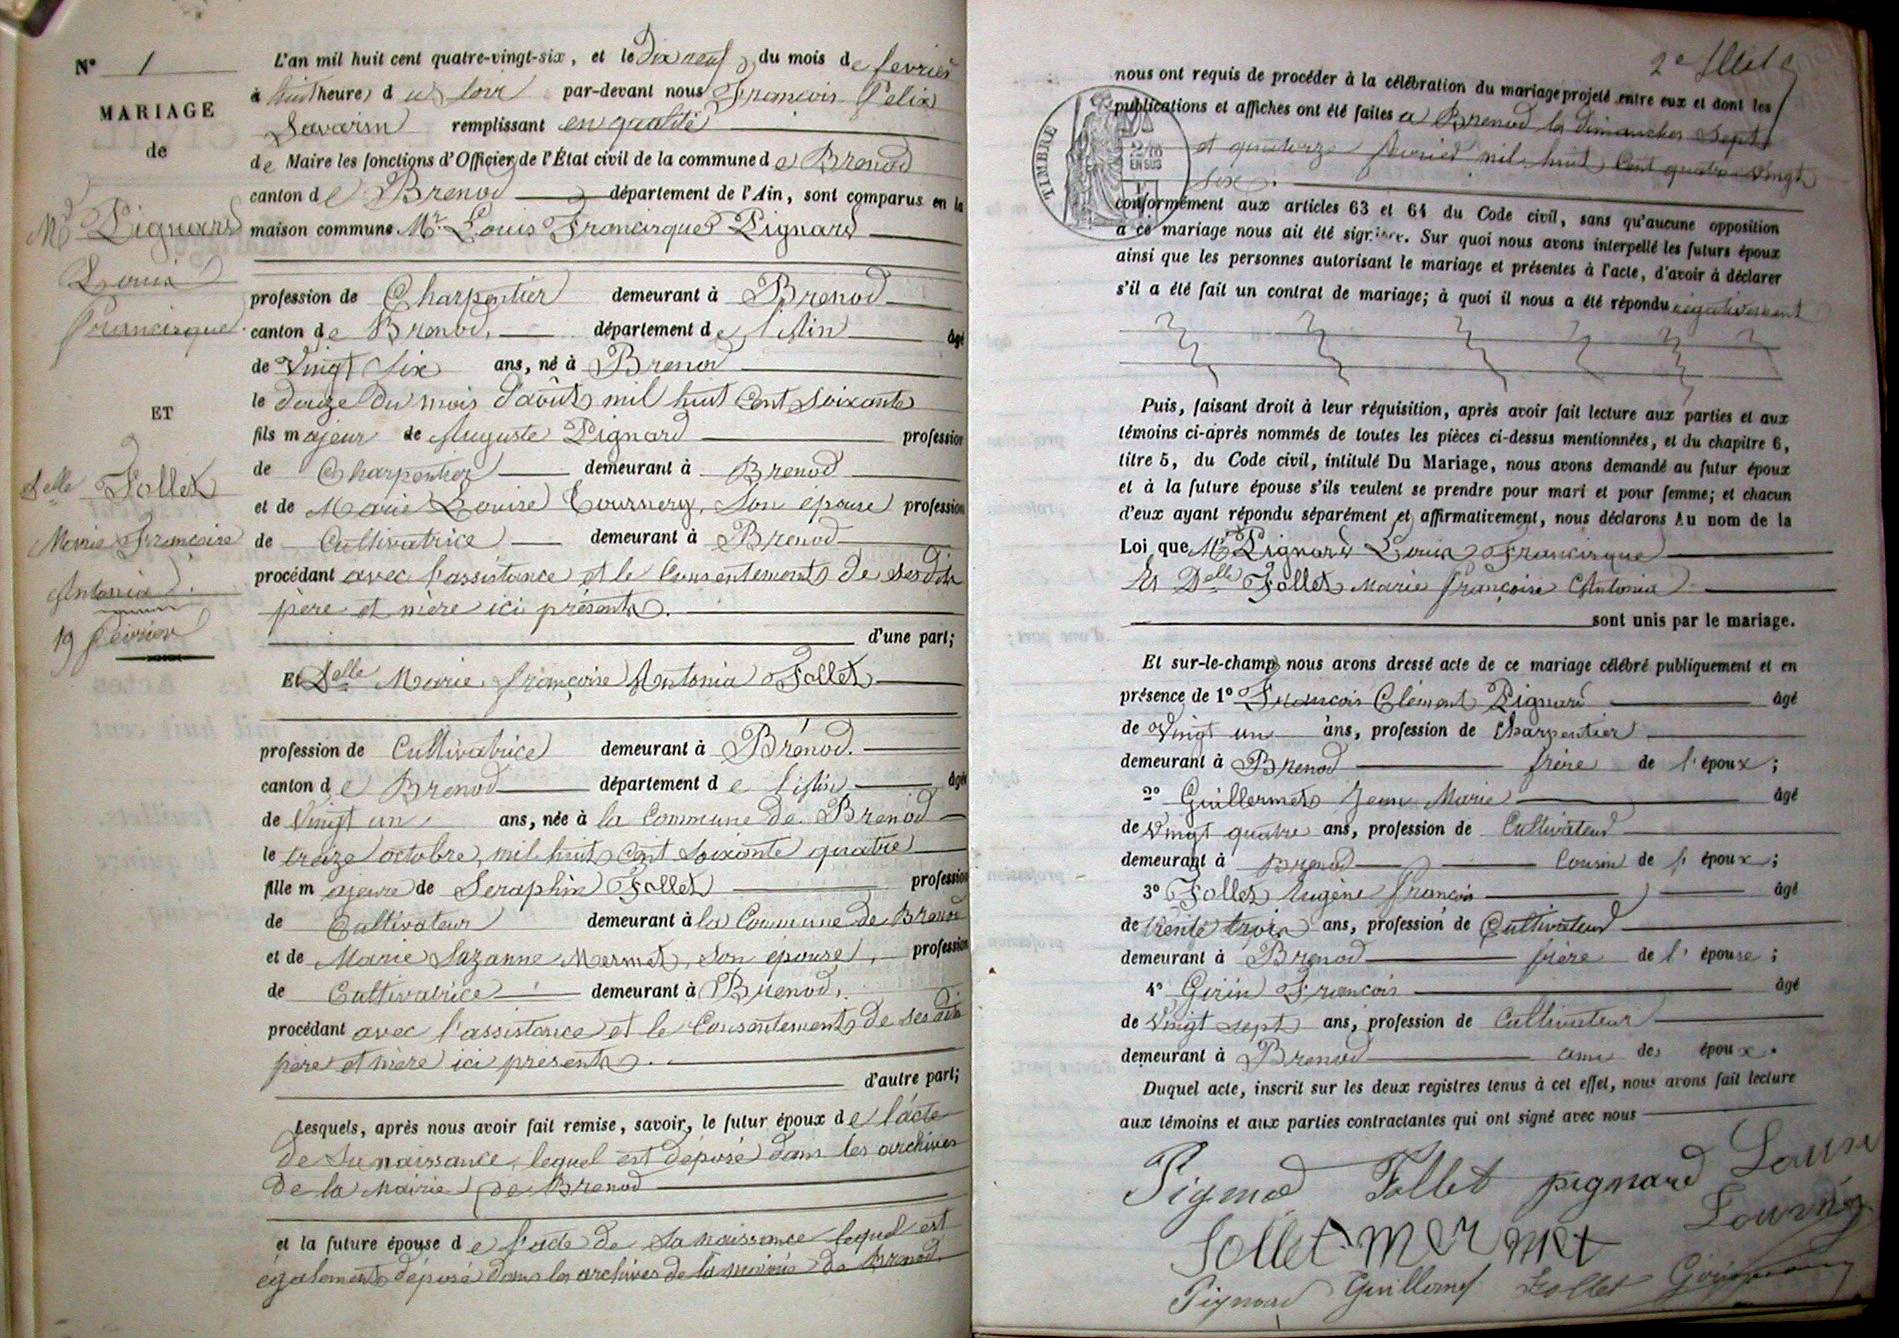 N° 1
MARIAGE
de
Mr Pignard
Louis
Francisque.
ET
Delle Follet
Marie Françoise
Antonia.
19 février
L'an mil huit cent quatre-vingt-six, et le Dix neuf du mois de février
à huit heures du soir par-devant nous François Felix
Savarin remplissant en qualité
de Maire les fonctions d'Officier de l'État civil de la commune de Brenod
canton de Brenod département de l'Ain, sont comparus en la
maison commune Mr Louis Francisque Pignard
profession de Charpentier demeurant à Brenod
canton de Brenod, département de l'Ain âgé
de Vingt six ans, né à Brenod
le douze du mois d'août mil huit cent soixante
fils majeur de Auguste Pignard profession
de Charpentier demeurant à Brenod
et de Marie Louise Tournery, son épouse profession
de Cultivatrice demeurant à Brenod
procédant avec l'assistance et le consentement de ses dits
père et mère ici présents.
d'une part;
Et Delle Marie françoise Antonia Follet
profession de Cultivatrice demeurant à Brénod.
canton de Brenod département de l'Ain âgée
de Vingt un ans, née à la Commune de Brenod
le treize octobre mil huit cent soixante quatre
fille majeure de Seraphin Follet profession
de Cultivateur demeurant à la Commune de Brenod
et de Marie Suzanne Mermet, son épouse, profession
de Cultivatrice demeurant à Brenod,
procédant avec l'assistance et le Consentement de ses dits
père et mère ici presents.
d'autre part;
Lesquels, après nous avoir fait remise, savoir, le futur époux de l'acte
de sa naissance, lequel est déposé dans les archives
de la Mairie de Brenod
et la future épouse de l'acte de sa naissance lequel est
également déposé dans les archives de la mairie de Brenod.
2e
nous ont requis de procéder à la célébration du mariage projeté entre eux et dont les
publications et affiches ont été faites a Brenod les dimanches sept
et quatorze fevrier mil huit Cent quatre vingt
six.
TIMBRE
EN SUS
conformément aux articles 63 et 64 du Code civil, sans qu'aucune opposition
à ce mariage nous ait été signifiée. Sur quoi nous avons interpellé les futurs époux
ainsi que les personnes autorisant le mariage et présentes à l'acte, d'avoir à déclarer
s'il a été fait un contrat de mariage; à quoi il nous a été répondu négativement
Puis, faisant droit à leur réquisition, après avoir fait lecture aux parties et aux
témoins ci-après nommés de toutes les pièces ci-dessus mentionnées, et du chapitre 6,
titre 5, du Code civil, intitulé Du Mariage, nous avons demandé au futur époux
et à la future épouse s'ils veulent se prendre pour mari et pour femme; et chacun
d'eux ayant répondu séparément et affirmativement, nous déclarons Au nom de la
Loi, que Mr Pignard Louis Francisque
Et Delle Follet Marie françoise Antonia
sont unis par le mariage.
Et sur-le-champ nous avons dressé acte de ce mariage célébré publiquement et en
présence de 1° François Clément Pignard âgé
de Vingt un ans, profession de Charpentier
demeurant à Brenod frère de l'époux;
2° Guillermet Jean Marie âgé
de Vingt quatre ans, profession de Cultivateur
demeurant à Brenod Cousin de l'époux;
3° Follet Eugène françois âgé
de trente trois ans, profession de Cultivateur
demeurant à Brenod frère de l'épouse;
4° Girin François âgé
de Vingt sept ans, profession de Cultivateur
demeurant à Brenod ami des époux.
Duquel acte, inscrit sur les deux registres tenus à cet effet, nous avons fait lecture
aux témoins et aux parties contractantes qui ont signé avec nous
Pignard Follet pignard Louise
Tournery
Follet Mermet
Pignard Guillermet Follet Girin